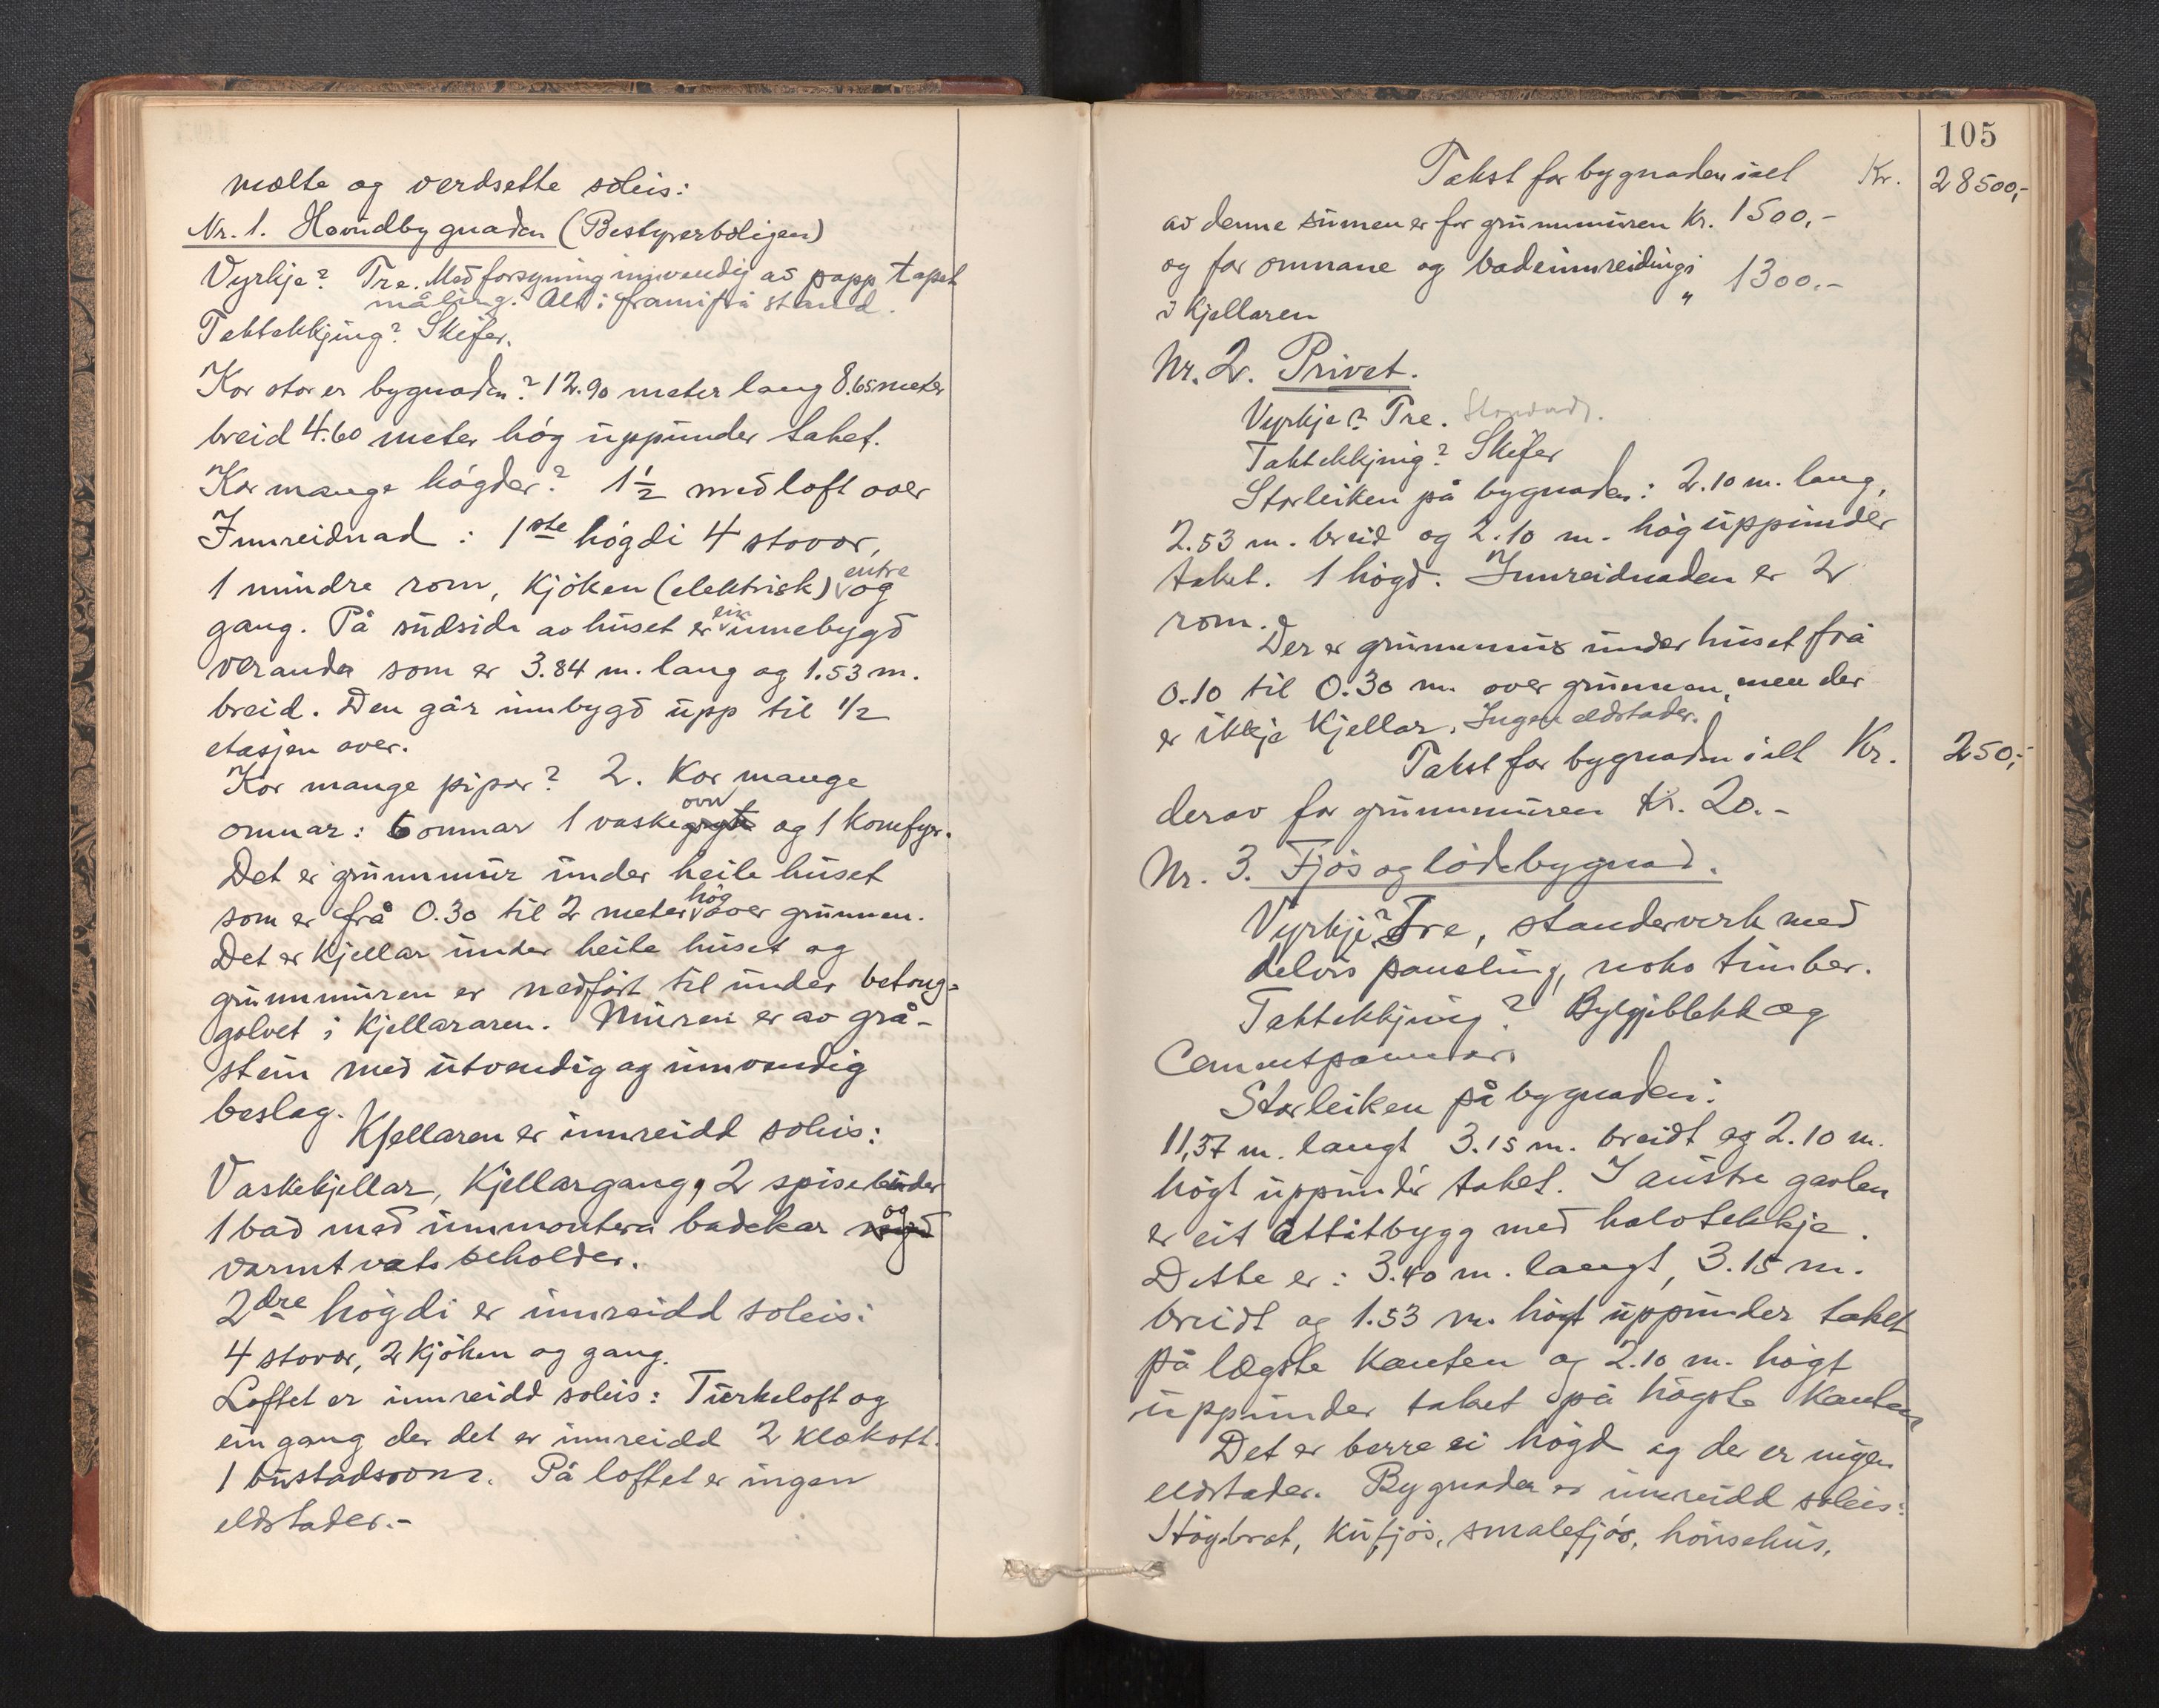 mælte og verdsette soleis:
Nr. 1. Hovudbygnaden (Bestyrerboligen)
Vyrkje? Tre. Med forsyning innvendig av papp tapet
måling. Alt i framifrå stand.
Taktekkjing? Skifer.
Kor stor er bygnaden? 12.90 meter lang 8.65 meter
breid 4.60 meter høg uppunder taket.
Kor mange høgder? 1½ med loft over
Innreidnad: 1ste høgdi 4 stovor,
1 mindre rom, Kjøken (elektrisk) entre og
gang. På südside av huset er ein innebygd
veranda som er 3.84 m. lang og 1.53 m.
breid. Den går innbygd upp til 1/2
etasjen over.
Kor mange pipor? 2. Kor mange
omnar: 6 omnar 1 vaskeovn og 1 Komfyr.
Det er grunnmur under heile huset
som er frå 0.30 til 2 meter høg over grunnen.
Det er Kjellar under heile huset og
grunnmuren er nedført til under betong-
golvet i Kjellararen. Muren er av grå-
stein med utvendig og innvendig
beslag.
Kjellaren er innreidd soleis:
Vaskekjellar, Kjellargang, 2 spisebuder
1 bad med innmontera badekar og
varmtvatsbeholder.
2dre høgdi er innreidd soleis:
4 stovor, 2 Kjøken og gang.
Loftet er innreidd soleis: Turkeloft og
ein gang der det er innreidd 2 klækott.
1 bustadsrom. På loftet er ingen
eldstader.-
105
Takst for bygnaden i alt Kr. 28500,-
av denne sumen er for grunnmuren Kr. 1500,-
og for omnane og badeinnreidingi
i Kjellaren " 1300.-
Nr. 2. Privet.
Vyrkje? Tre.
Taktekkjing? Skifer
Storleiken på bygnaden: 2.10 m. lang,
2.53 m. breid og 2.10 m. høg uppunder
taket. 1 høgd. Innreidnaden er 2
rom.
Der er grunnmur under huset frå
0.10 til 0.30 m. over grunnen, men der
er ikkje Kjellar. Ingen eldstader.
Takst for bygnaden i alt Kr. 250,-
derav for grunnmuren Kr. 20.-
Nr. 3. Fjøs og lødebygnad.
Vyrkje? Tre, standerverk med
delvis paneling, noko timber.
Taktekkjing? Bylgjeblekk og
Cementpannor.
Storleiken på bygnaden:
11,37 m. langt 3.15 m. breidt og 2.10 m.
høgt uppunder taket. I austre gavlen
er eit attåtbygg med halvtekkje.
Dette er: 3.40 m. langt, 3.15 m.
breidt og 1.53 m. høgt uppunder taket
på lægste Kanten og 2.10 m. høgt
uppunder taket på høgste Kanten
Det er berre ei høgd og der er ingen
eldstader. Bygnaden er innreidd soleis:
Høgbrot, Kufjøs, smalefjøs, hønsehus,